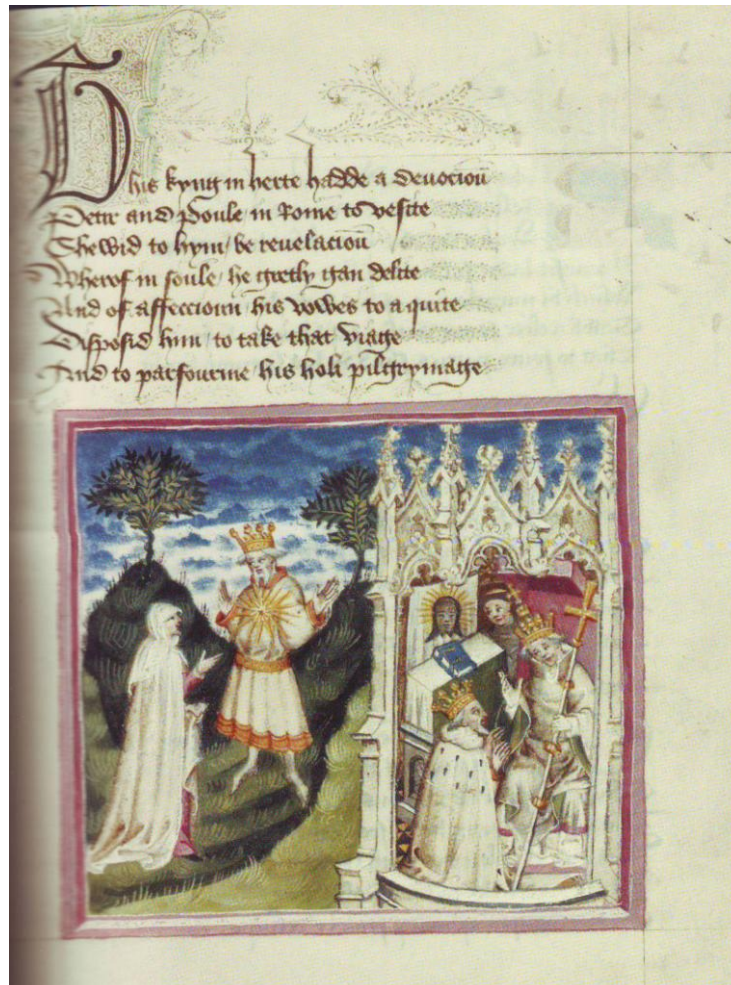 This kyng in herte hadde a devocioū
Petir and Poule in Rome to vesite
Shewid to hym be revelacioū
Wherof in soule he gretly gan delite
And of affeccioun his vowes to a quite
Disposid him to take that viage
And to parfourme his holi pilgrymage